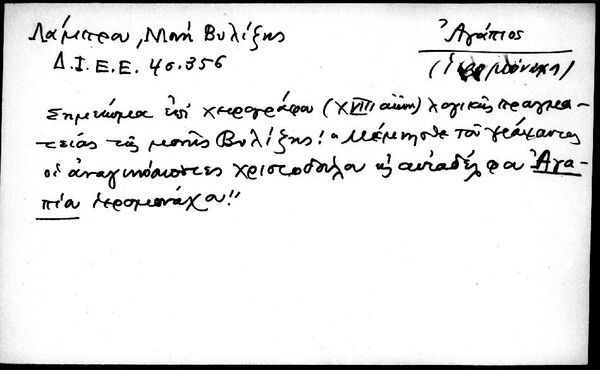 Λάμπρου, Μονή Βυλίζης
Ἀγάπιος
Δ.Ι.Ε.Ε. 4σ.356
(ἱερομόναχος)
Σημείωμα ἐπί χειρογράφου (XVIII αἰῶν) λογικῆς πραγμα-
τείας τῆς μονῆς Βυλίζης! "Μέμνησθε τοῦ γράψαντος
οἱ ἀναγινώσκοντες Χριστοδούλου κ αὐταδέλφου Ἀγα-
πίου ἱερομονάχου"